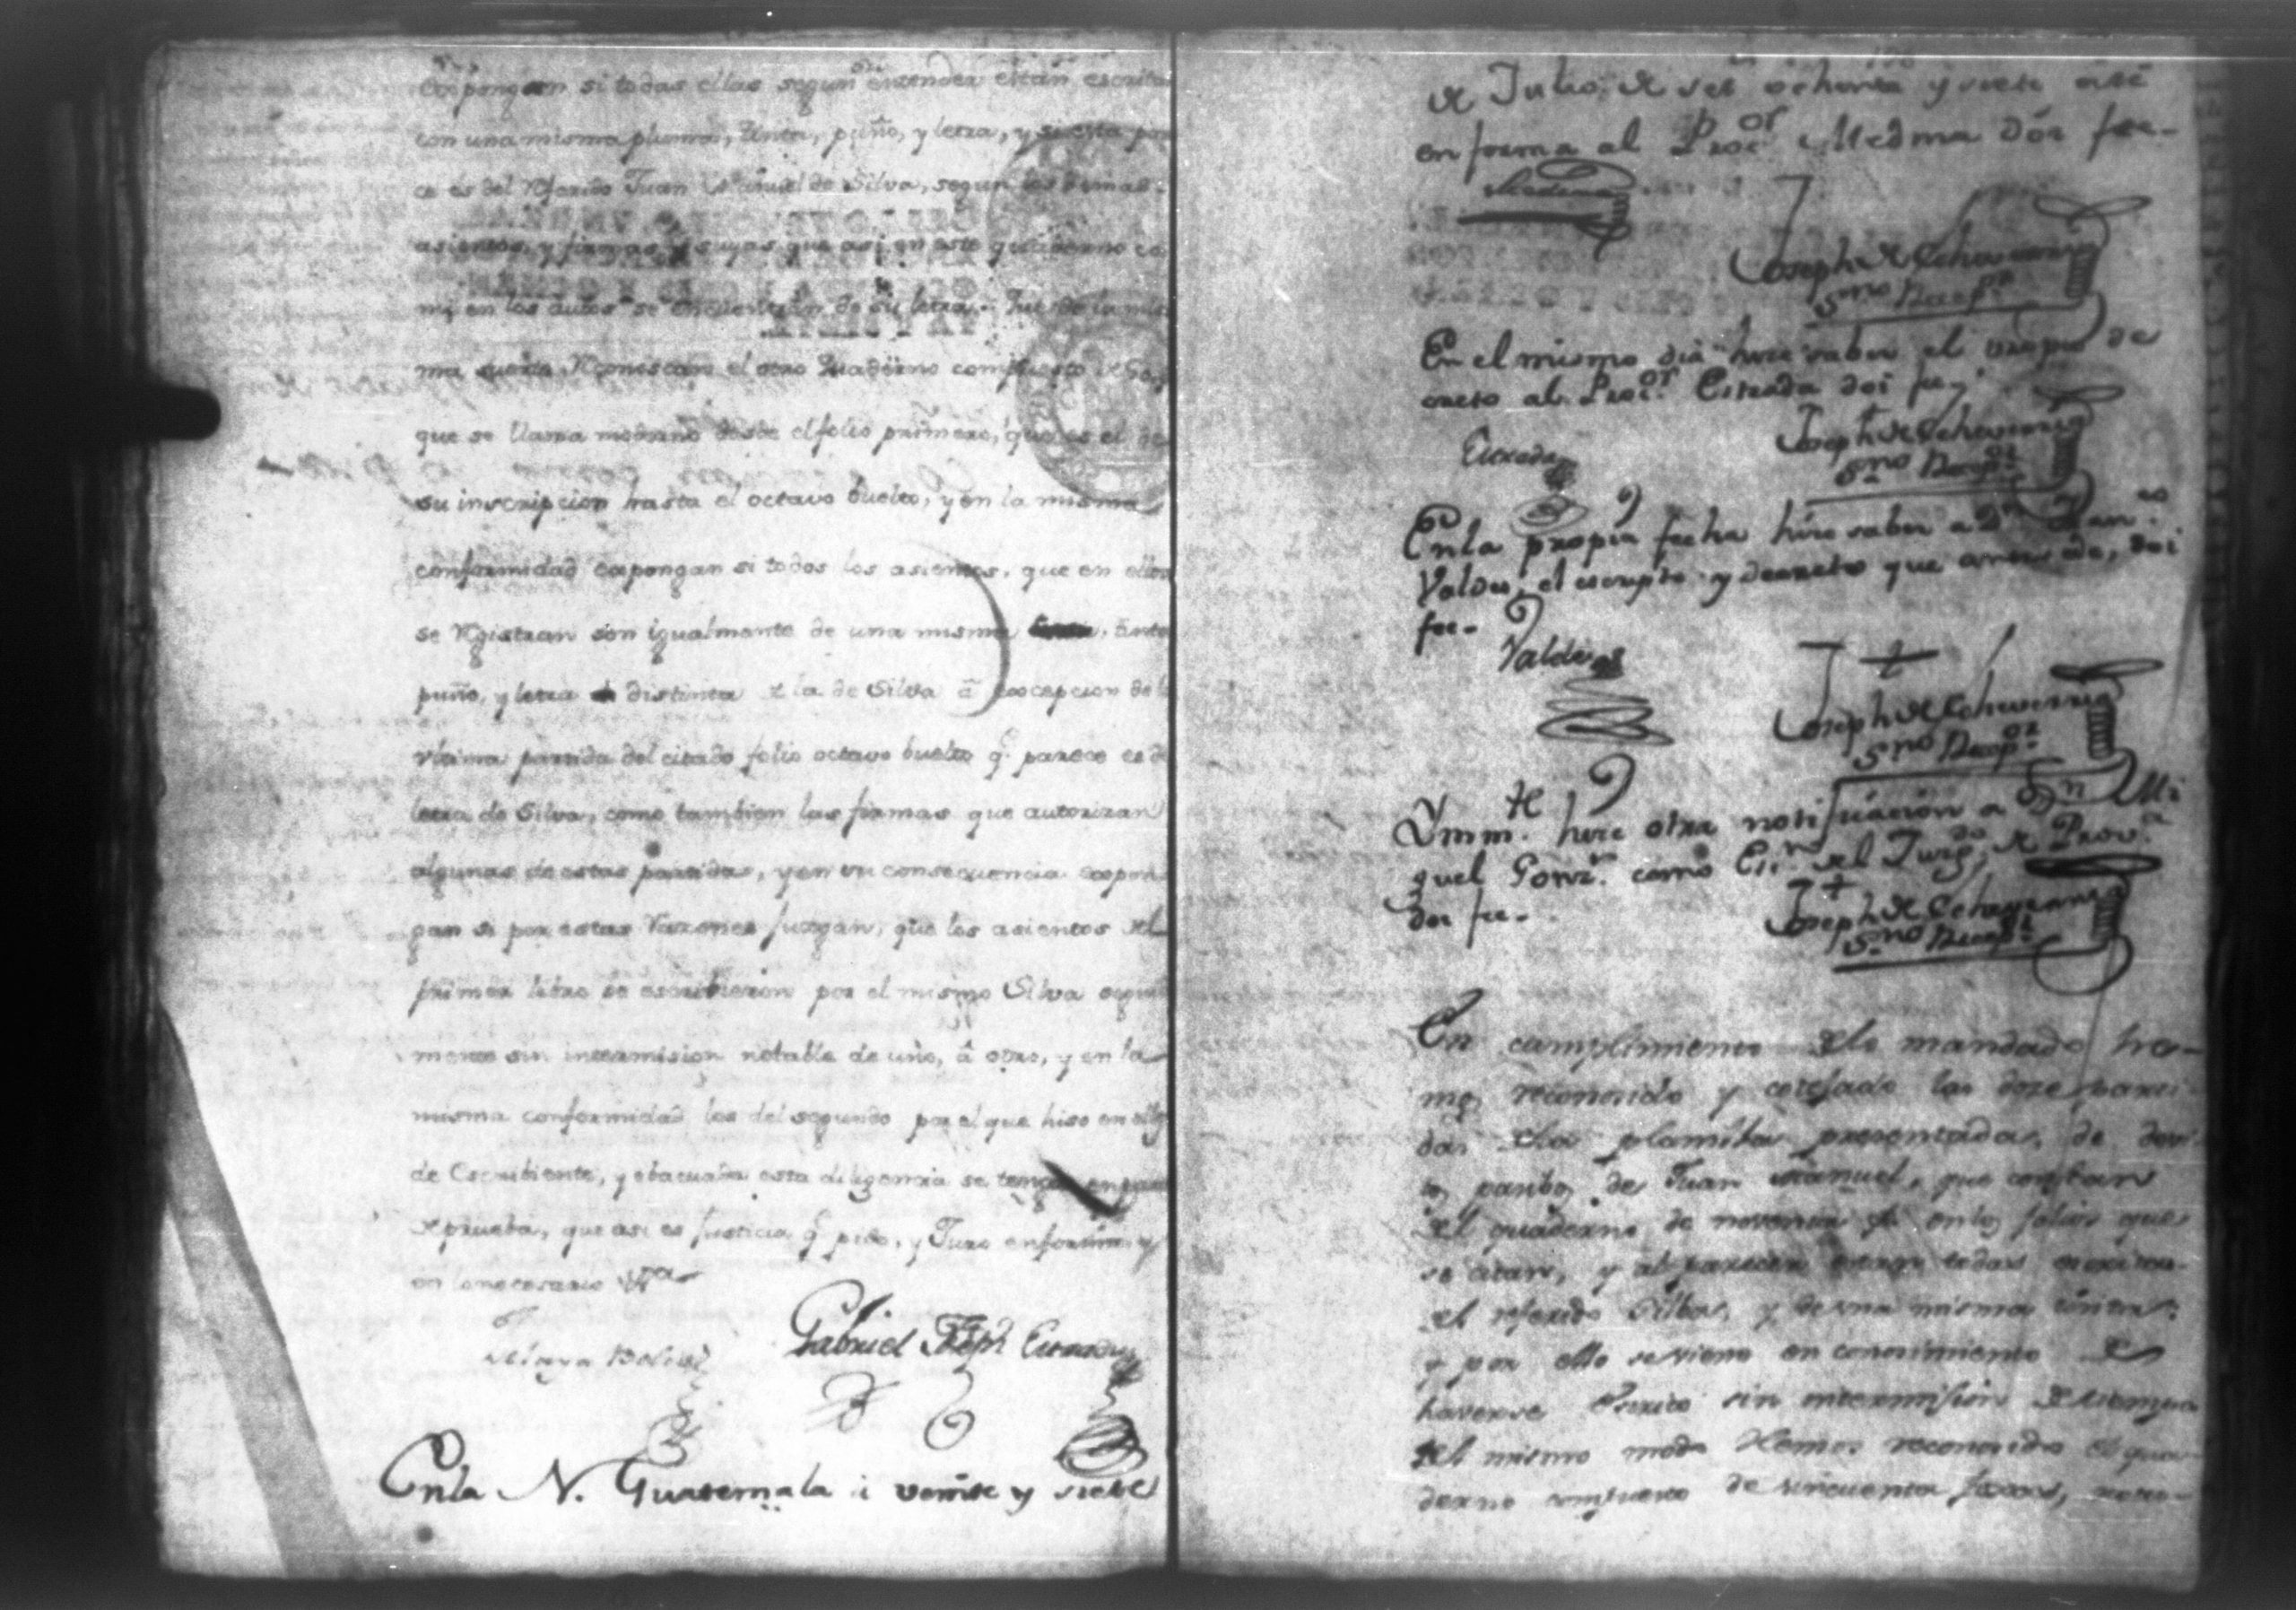 expongan si todas ellas segun su entender están escritas
con una misma pluma, tinta, puño, y letra, y si esta pare
ce es del Referido Juan Manuel de Silva, segun los demas
asientos, y firmas suyas que asi en este quaderno co
mo en los autos se encuentran de su letra. Que de la mis
ma suerte Reconoscan el otro quaderno compuesto de
que se llama moderno desde el folio primero, que es el de
su inscripcion hasta el octavo buelto, y en la misma
conformidad expongan si todos los asientos, que en ellos
se Registran son igualmente de una misma tinta
puño, y letra distinta de la de Silva â excepcion de la
vltima partida del citado folio octavo buelto q.e parece es de
letra de Silva, como tambien las firmas que autorizan
algunas de estas partidas, y en su consequencia expon
gan si por estas Razones juzgan, que los asientos del
primer libro se escribieron por el mismo Silva segui
mente sin intermision notable de uno, â otro, y en la
misma conformidad los del segundo por el que hiso en ello
de Escribiente, y ebacuada esta diligencia se tenga en parte
de prueba, que asi es justicia q.e pido, y Juro en forma, y
en lo necesario &.a
Gabriel Joseph Estrada
En la N. Guatemala â veinte y siete
de Julio de set.s ochenta y siete cité
en forma al Proc.or Medina doi fee-
Medina
Joseph de Echeverria
S.no Recep.or
En el mismo dia hice saber el propio de
creto al Proc.or Estrada doi fee
Estrada
Joseph de Echeverria
S.no Recep.or
En la propia fecha hice saber a D.n Fran.co
Valdes, el escripto y decreto que antesede, doi
fee-
Valdes
Joseph de Echeverria
S.no Recep.or
Ynmm.te hice otra notificacion a D.n Mi
guel Gonz.z como Es.no del Juzg.do de Prov.a
doi fee-
Joseph de Echeverria
S.no Recep.or
En cumplimiento de lo mandado he-
mos reconocido y cotejado las doze parti
das de la planilla presentada, de
por parte de Juan Manuel, que constan
del quaderno de noventa f. en los folios que
se citan, y al parecer estan todas escritas
del referido Silba, y de una misma tinta:
y por ello se viene en conocimiento de
haverse escrito sin intermision de tiempo
del mismo modo Hemos reconocido el qua
derno compuesto de cincuenta foxas,